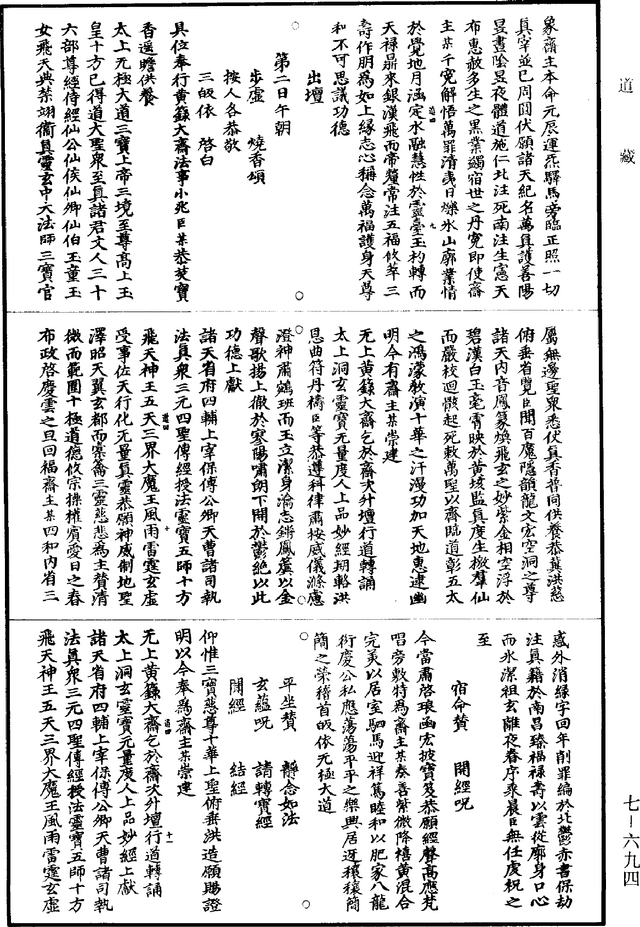 道藏
象齋主本命元辰運炁驛馬旁臨正照一切
真宰並已周圓伏願諸天紀名萬真護善陽
昱晝陰昱夜體道施仁北注死南注生憲天
布惠赦多生之黑業蠲宿世之丹寃即使齋
主某千寃解悟萬罪清夷日爍氷山廓業情
於覺地月涵定水融慧性於靈臺玉杓轉而
天祿鼎來銀漢飛而帝釐常注五福攸萃三
壽作朋為如上緣志心稱念萬福護身天尊
和不可思議功德
出壇
第二日午朝
步虛 燒香頌
按人各恭敬
三皈依 啓白
具位奉行黃籙大齋法事小兆臣某恭焚寶
香遥瞻供養
太上无極大道三寶上帝三境至尊高上玉
皇十方已得道大聖衆至真諸君丈人三十
六部尊經侍經仙公仙侯仙卿仙伯玉童玉
女飛天典禁翊衞真靈玄中大法師三寶官
屬無邊聖衆悉伏真香普同供養恭冀洪慈
俯垂省覽臣聞百魔隱韻龍文宏空洞之尊
諸天内音鳳篆煥飛玄之妙紫金相空浮於
碧漢白玉毫霄映於黄垓監真度生檄羣仙
而嚴校迴骸起死敕萬聖以齋臨道彰五太
之鴻濛教演十華之汗漫功加天地惠逮幽
明今有齋主某崇建
无上黄籙大齋乞於齋次升壇行道轉誦
太上洞玄靈寶无量度人上品妙經朝輅洪
恩曲符丹禱臣等恭遵科律肅按威儀滌慮
澄神肅鵷班而玉立潔身渝志鏘鳳蓂以金
聲歌揚上徹於寒陽嘯朗下開於鬱絶以此
功德上獻
諸天省府四輔上宰保傅公卿天曹諸司執
法真衆三元四聖傳經授法靈寶五師十方
飛天神王五天三界大魔王風雨雷霆玄虛
受事位天行化无量真靈恭願神威制地聖
澤昭天翼玄都而禀籥三靈慈悲為主賛清
微而範圍十極道德攸宗操權賓愛日之春
布政啓慶雲之旦回福齋主某四和内省三
惑外消緑字回年削罪編於北鬱赤書保劫
注真籍於南昌臻福祿壽以雲從廓身口心
而氷潔祖玄離夜眷序乘晨臣無任虔祝之
至
宿命賛 開經呪
今當肅啓琅函宏披寶笈恭願經聲高應梵
唱旁敷特為齋主某奏善紫微降禧黄混合
完美以居室駟馬迎祥篤睦和以肥家八龍
衍慶公私應蕩蕩平平之樂興居迓穰穰簡
簡之榮稽首皈依元極大道
平坐賛 静念如法
玄蘊呪 請轉寶經
開經 結經
仰惟三寶慈尊十華上聖俯垂洪造願賜證
明以今奉為齋主某崇建
无上黄籙大齋乞於齋次升壇行道轉誦
太上洞玄靈寶无量度人上品妙經上獻
諸天省府四輔上宰保傅公卿天曹諸司執
法真衆三元四聖傳經授法靈寶五師十方
飛天神王五天三界大魔王風雨雷霆玄虛
七－六九四